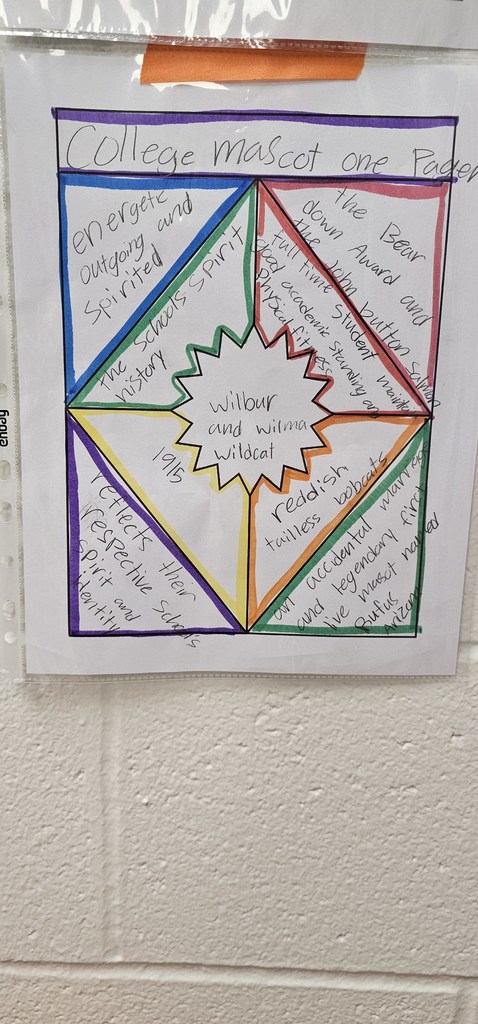 College mascot one Pager
energetic
outgoing and
spirited
the schools spirit
history
the Bear
down Award and
the John button Salmon
full time student maintain
good academic standing and
Physical fitness
Wilbur
and wilma
wildcat
1915
reflects their
respective school's
spirit and
identity
reddish
tailless bobcats
an accidental marriage
and legendary first
live mascot named
Rufus
Arizona